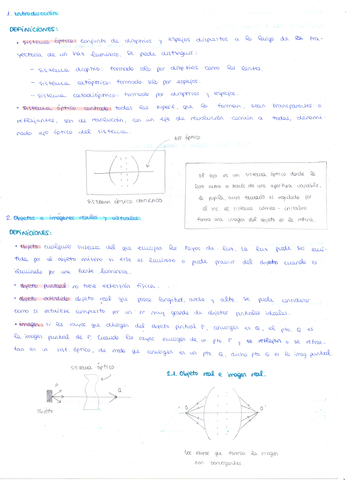 1. Introducción
DEFINICIONES:
• Sistema óptico: conjunto de dioptrios y espejos dispuestos a lo largo de la tra-
yectoria de un haz luminoso. Se puede distinguir:
- Sistema dióptrico: formado sólo por dioptrios como las lentes.
- Sistema catóptrico: formado sólo por espejos.
- Sistema catadióptrico: formado por dioptrios y espejos.
• Sistema óptico centrado: todas las superf. que lo forman, sean transparentes o
reflejantes, son de revolución, con un eje de revolución común a todas, denomi-
nado eje óptico del sistema.
eje óptico
SISTEMA ÓPTICO CENTRADO
El ojo es un sistema óptico donde la
luz entra a través de una apertura variable,
la pupila,
forma una imagen del objeto en la retina
2. Objetos e imágenes reales y virtuales
DEFINICIONES:
• Objeto: cualquier sistema del que emerjan los rayos de luz. La luz puede ser emi-
tida por el objeto mismo si este es luminoso o puede provenir del objeto cuando es
iluminado por una fuente luminosa.
• Objeto puntual: no tiene extensión física.
• Objeto extendido: objeto real que posee longitud, ancho y alto. Se puede considerar
como si estuviese compuesto por un nº muy grande de objetos puntuales ideales.
• Imagen: si los rayos que divergen del objeto puntual P, convergen en Q, el pto. Q es
la imagen puntual de P. Cuando los rayos emergen de un pto. P y se reflejan o se refrac-
tan en un sist. óptico, de modo que convergen en un pto. Q, dicho pto Q es la imag puntual.
Sistema óptico
Objeto
Q
2.1. Objeto real e imagen real.
P
Q
Los rayos que forman la imagen
son convergentes